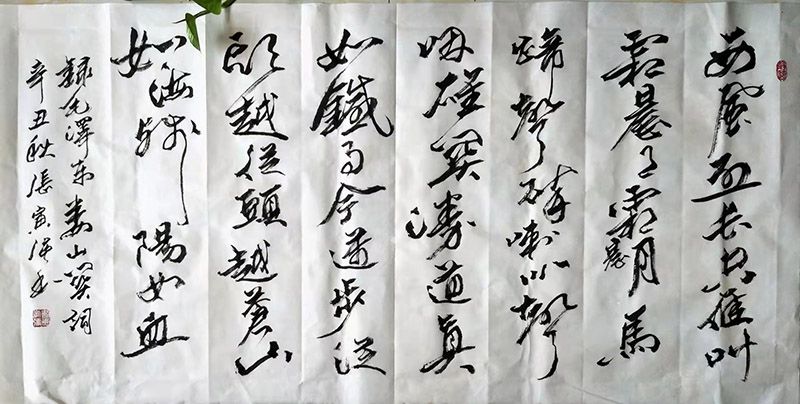 西風烈長空雁叫
霜晨月霜晨月馬
蹄聲碎喇叭聲
咽雄關漫道真
如鐵而今邁步從
頭越從頭越蒼山
如海殘陽如血
録毛澤东婁山関詞
辛丑秋張寅